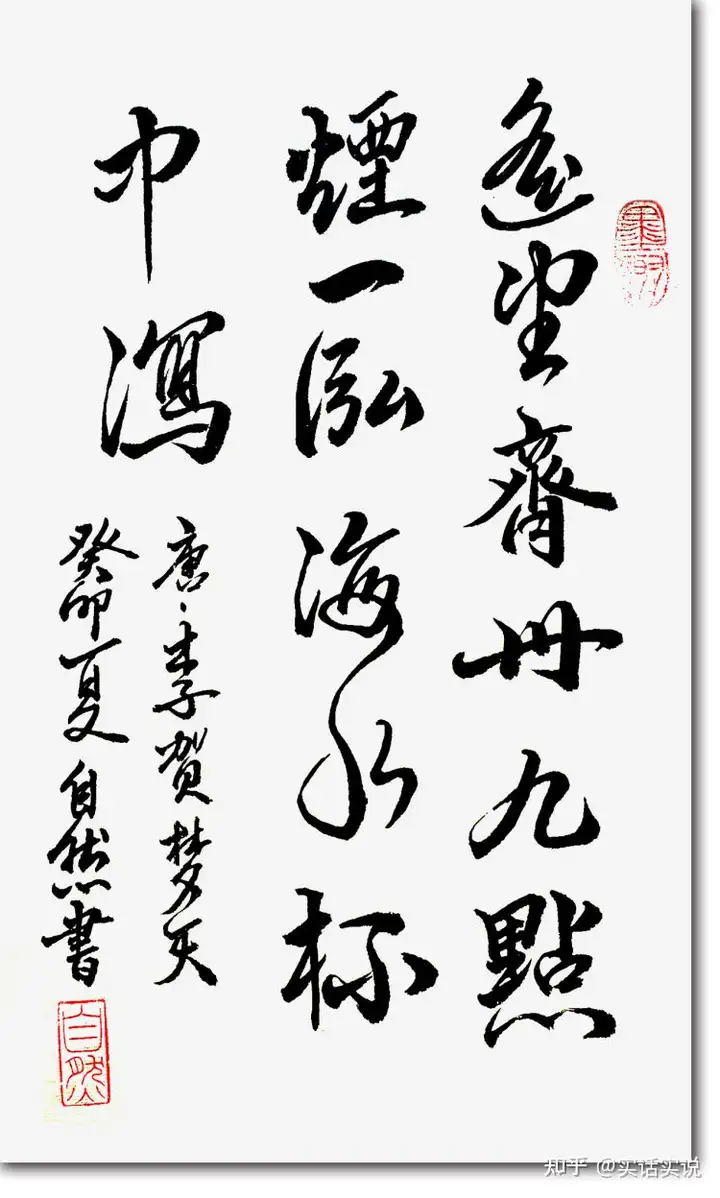 遙望齊州九點
煙一泓海水杯
中瀉
唐、李賀梦天
癸卯夏自然書
自然
知乎 @实话实说